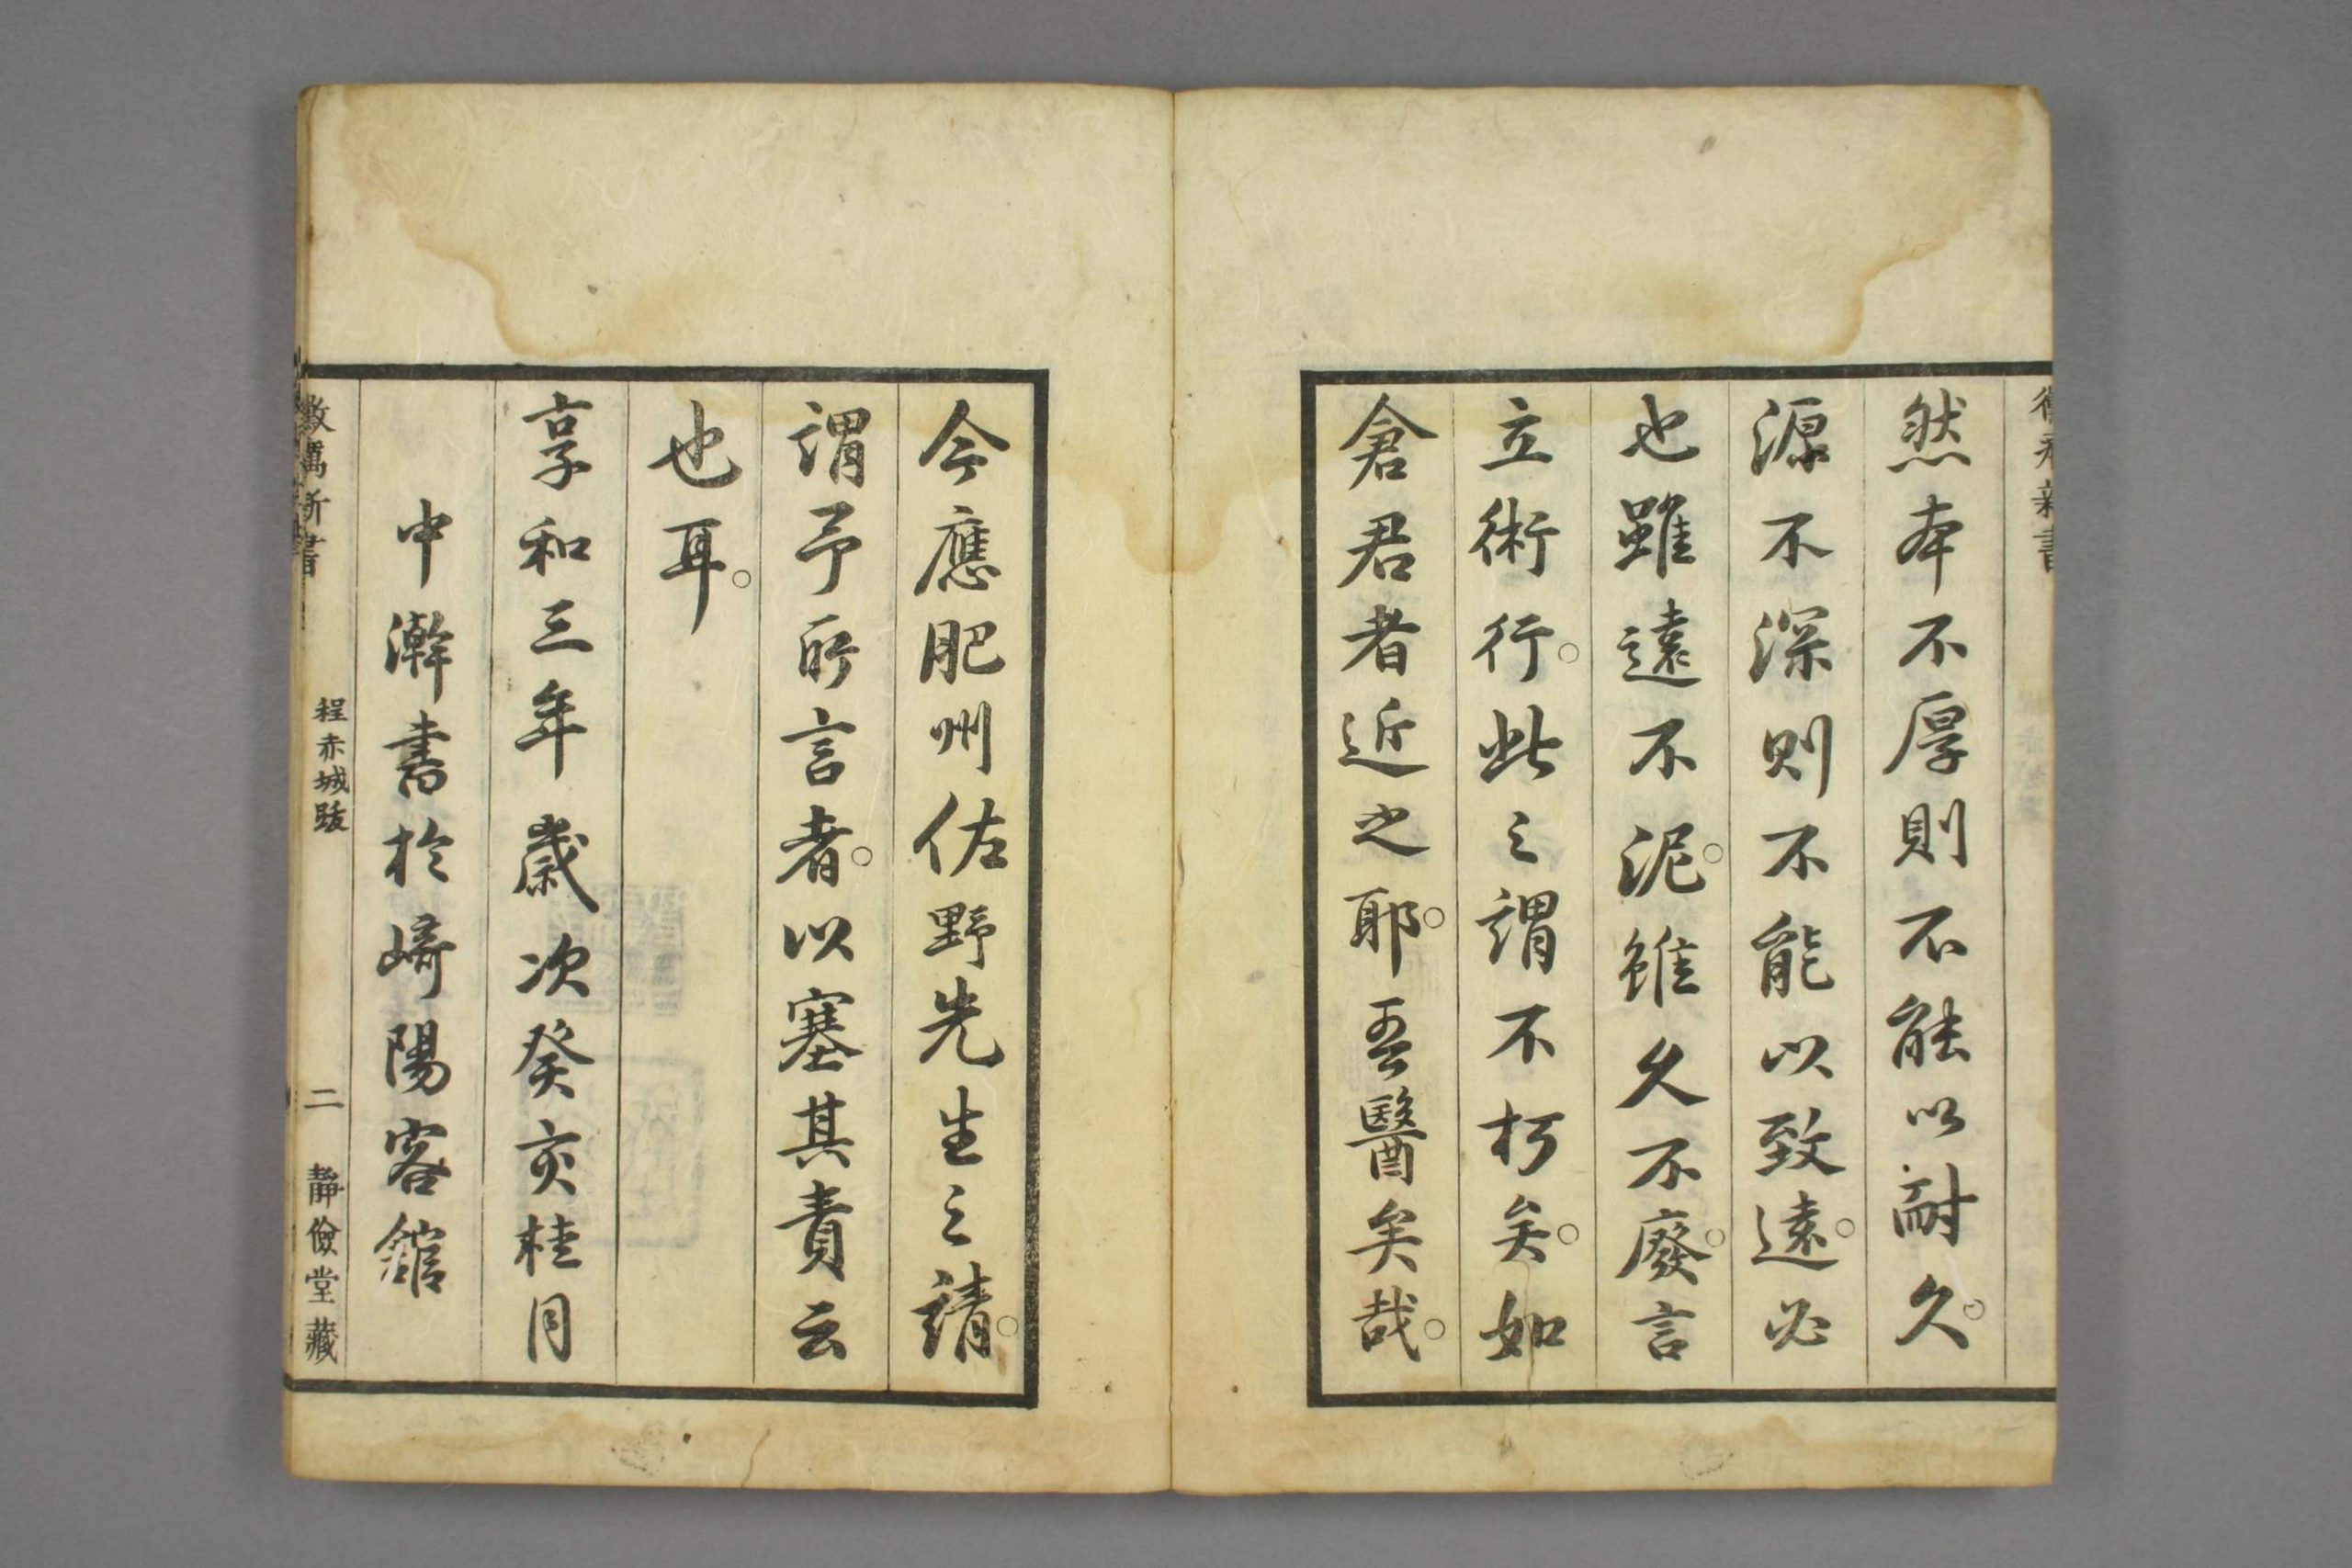 然本不厚則不能以耐久
源不深則不能以致遠必
也雖遠不泥雖久不廢言
立術行此之謂不朽矣如
倉君者近之耶吾醫矣哉
今應肥州佐野先生之請
謂予所言者以塞其責云
也耳
享和三年歲次癸亥桂月
中澣書於崎陽客館
程赤城跋
二
靜儉堂藏